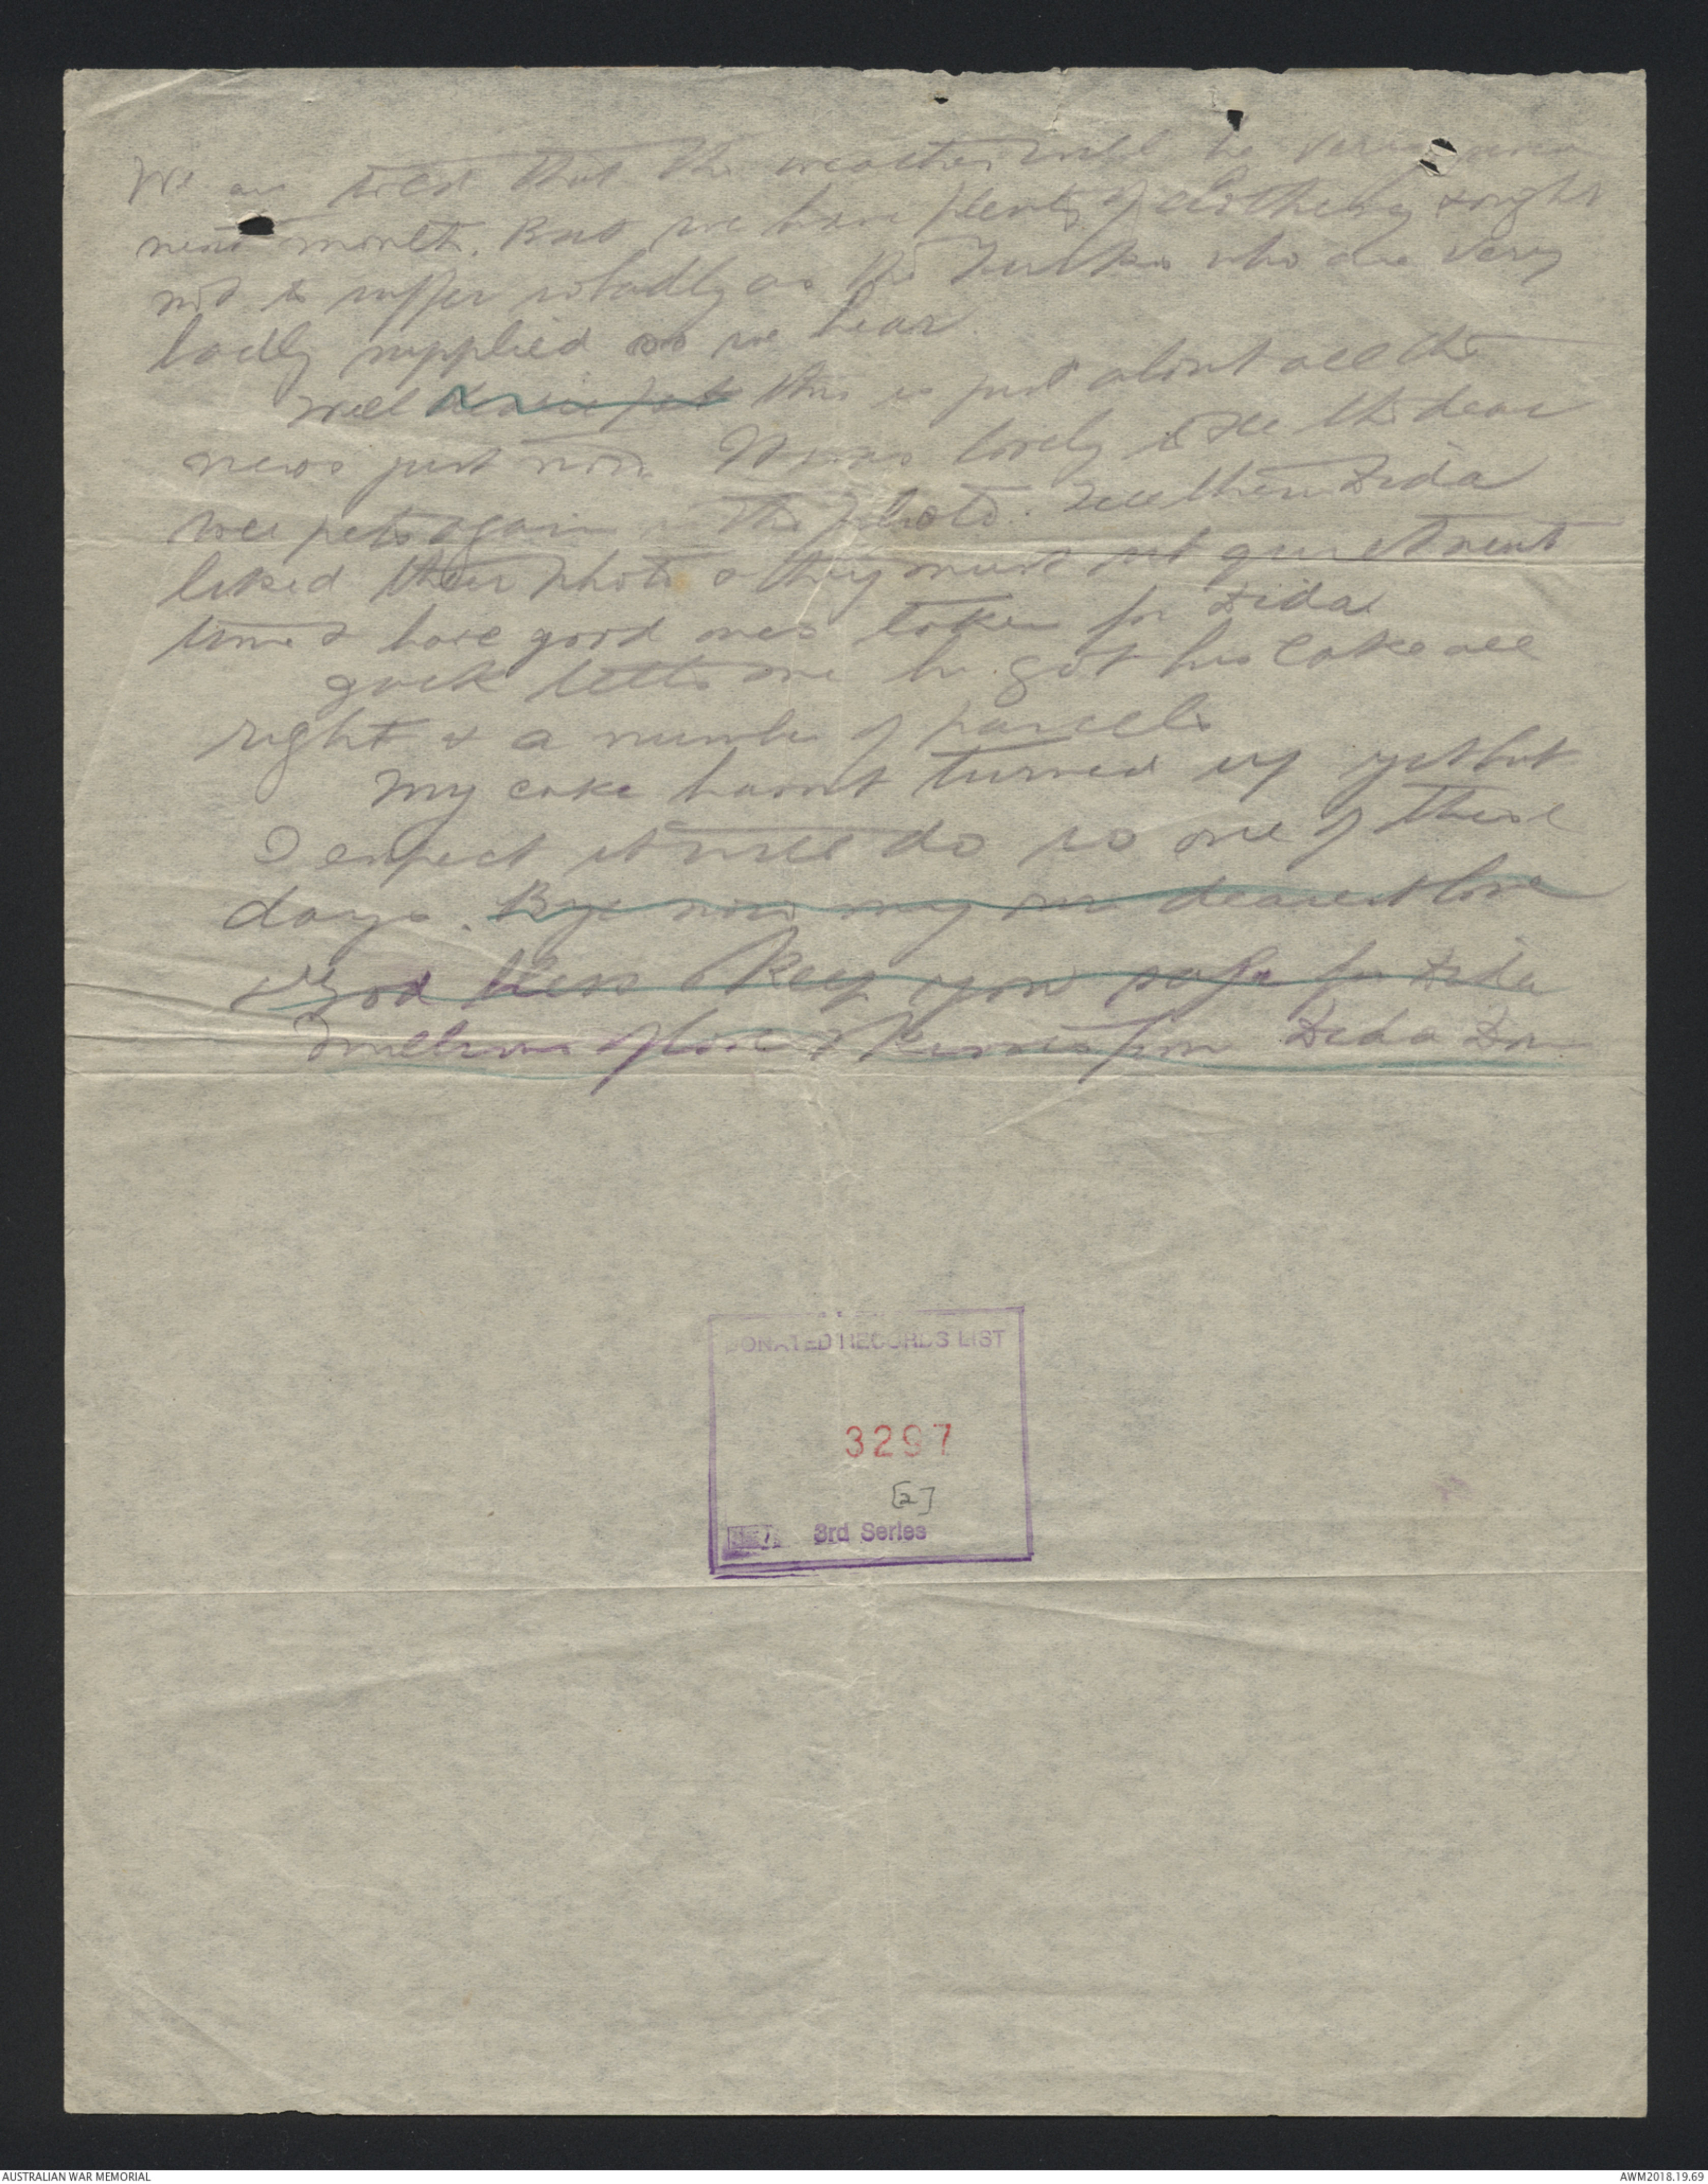 We are told that the weather will be very
next month. But we have plenty of clothing & ought
not to suffer so badly as the Turks who are very
badly supplied so we hear.
Well dearie pet this is just about all the
news just now. It was lovely to see the dear
wee pets again in the photo. Tell them Dida
liked their photo & they must not next
time & have good ones taken for Dida
Jack tells me he got his cake all
right & a number of parcels
My cake hasn't turned up yet but
I expect it will do so one of these
days. Bye now my own dearest love
& God bless & keep you safe for Dida
millions of love & kisses from Dida
DONATED RECORDS LIST
3297
[2]
3rd Series
AUSTRALIAN WAR MEMORIAL
AWM2018.19.69